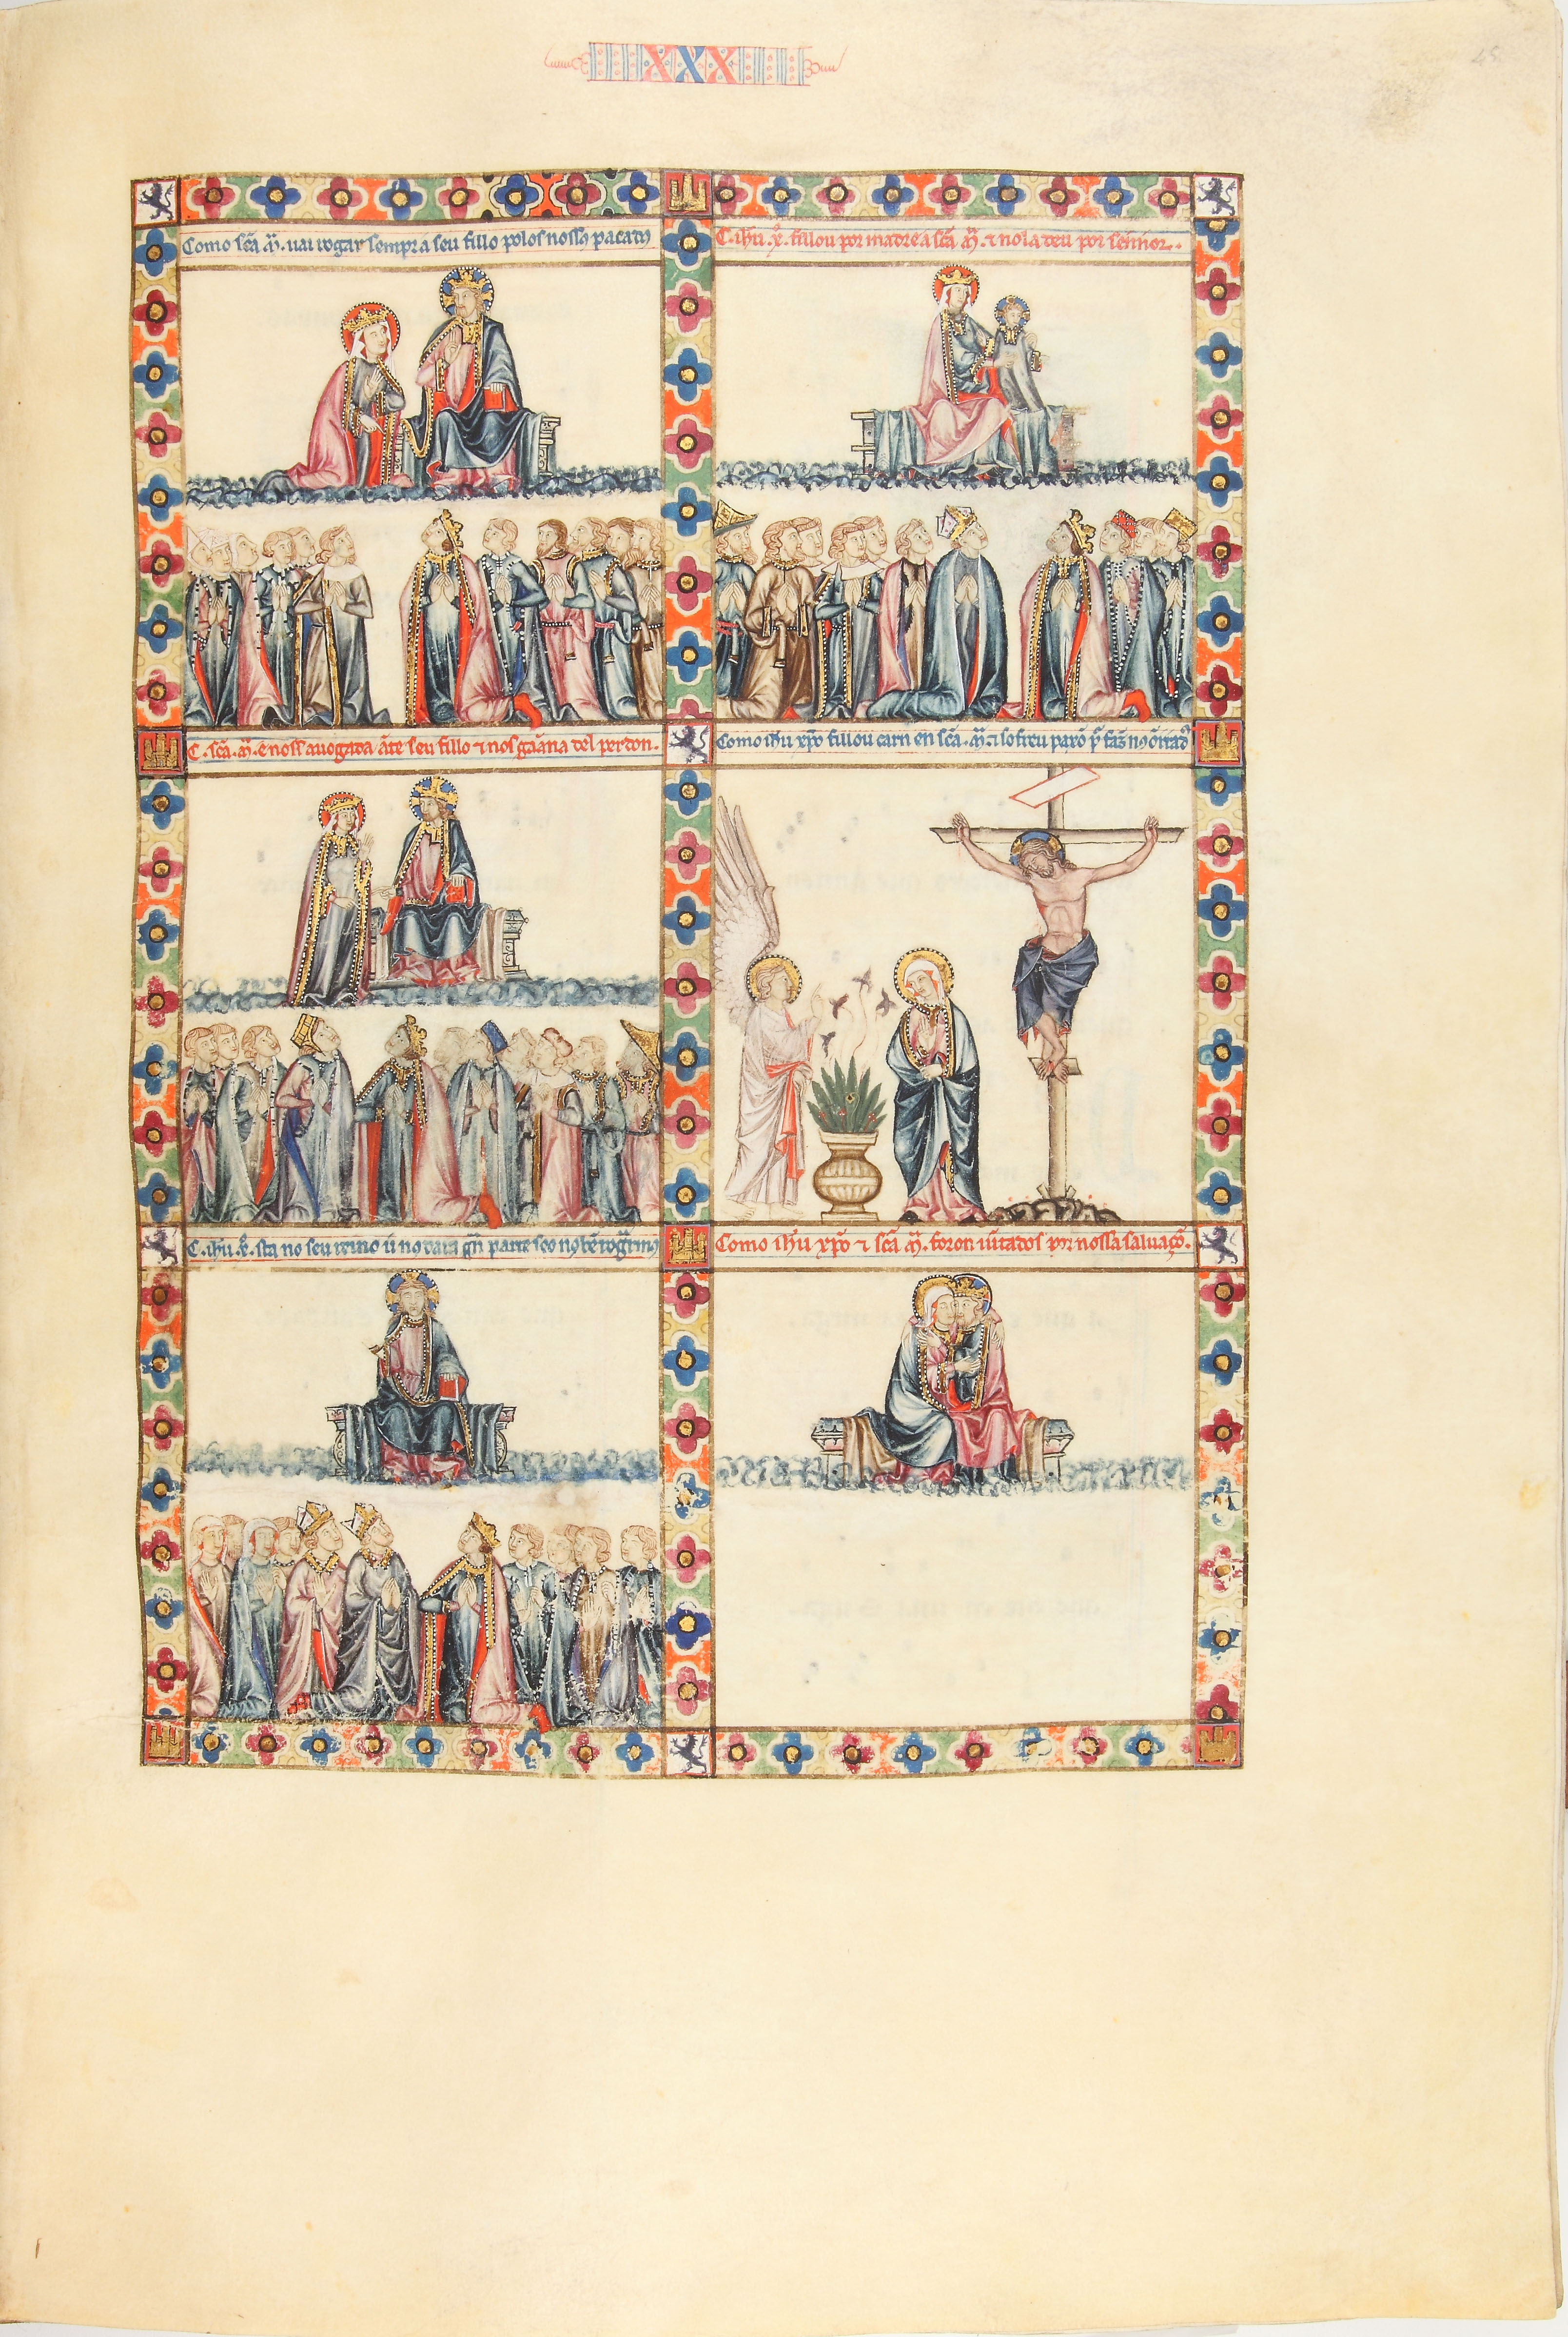 XXX
45
Como scã m̃. uai rogar sempr a seu fillo polos nossos pecados
C. ihũ. x̃. fillou por madre a scã m̃. ⁊ nola deu por sennor.
C. scã. m̃. e noss auogada ãte seu fillo ⁊ nos gaãna del perdon.
Como ihũ xp̃o fillou carn en scã. m̃. ⁊ sofreu paxõ
C. ihũ. x̃. sta no seu reino
Como ihũ xp̃o ⁊ scã m̃. foron iũtados por nossa saluaçõ.